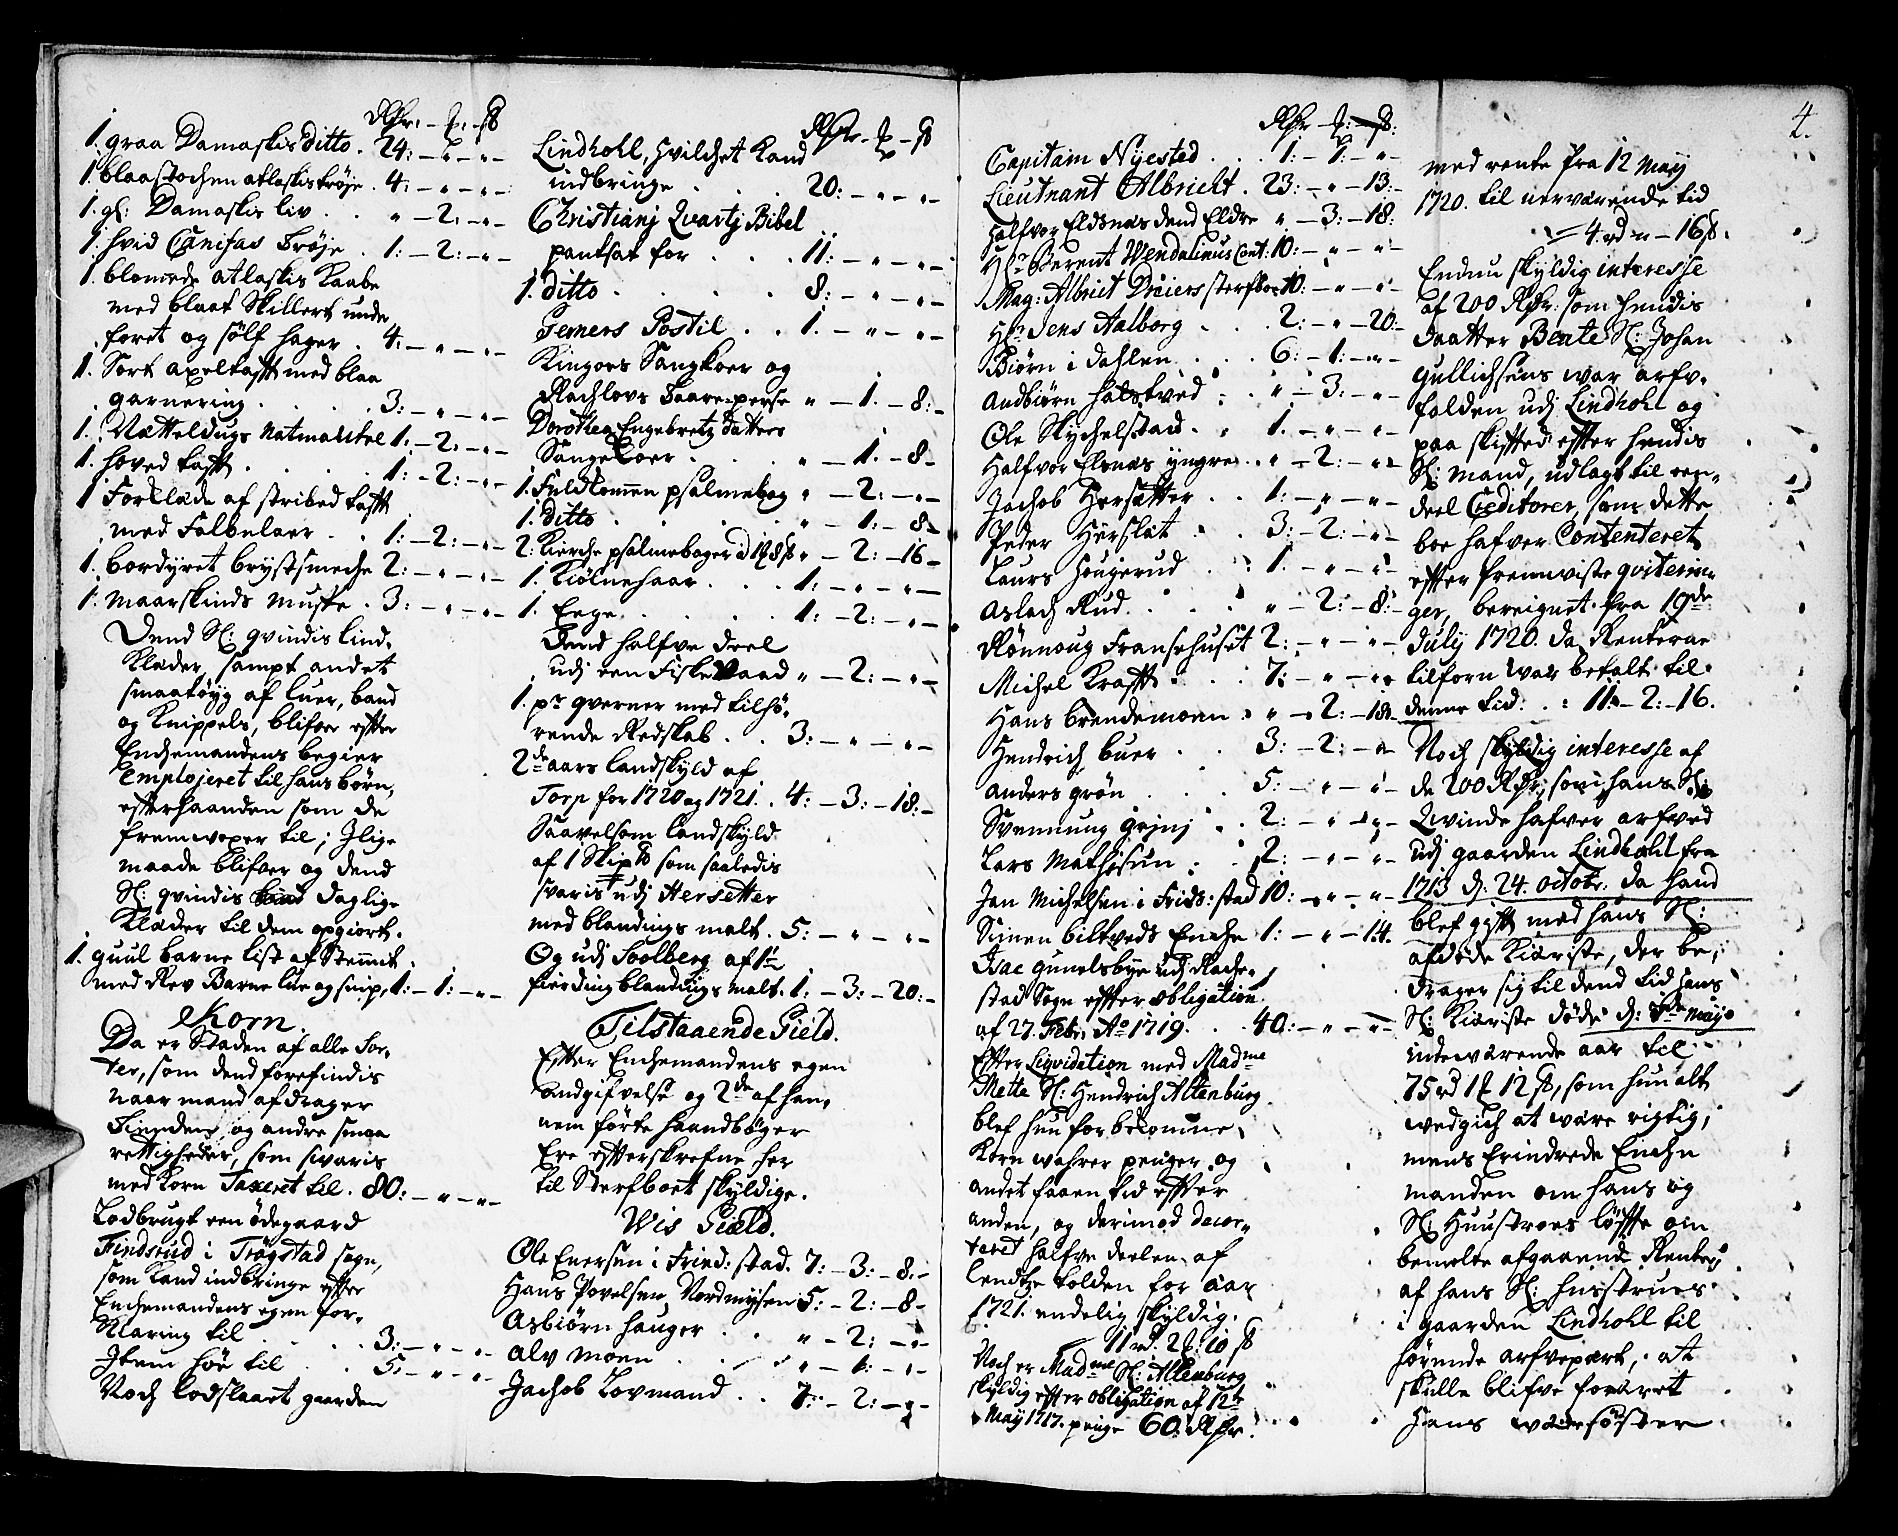 Rdr. – ₰. – ß
1. graa Damaskis ditto . 24: – " – " –
1. blaa stochen atlaskis trøje . 4: – " – " –
1. gl: Damaskis liv . . " – 2: – " –
1. hvid Canifas trøje . 1: – 2: – " –
1. blomede atlaskis Kaabe
med blaat Skillert under
foret og sølf hager . 4: – " – " –
1. Sort axeltafft med blaa
garnering . . . . 3: – " – " –
1. Netteldugs Natmantel 1: – 2: – " –
1. hoved tafft . . . . 1: – 2: – " –
1 Forklæde af stribed tafft
med Falbelaer . . 1: – 2: – " –
1. bordyret brystsmeche 2: – " – " –
1. Maarskinds Muffe . 3: – " – " –
Dend Sl: qvindis lind-
Klæder, sampt andet
smaatøyg af luer, band
og Knippels, blifver effter
Enchemandens begier
Emplojeret til hans børn,
effterhaanden som de
fremvoxer til; Ilige
maade blifver og dend
Sl: qvindis daglige
Klæder til dem opgiort.
1. guul barne list af Stemmit
med Rev Barne lue og snip, 1: – 1: – " –
Korn.
Da er Staden af alle Sor-
ter, som dend forefindis
naar mand afdrager
Tienden og andre smaa
rettigheder, som svaris
med Korn Taxeret til . 80: – " – " –
Lodbrugt een ødegaard
Findsrud i Trøgstad sogn,
som Kand indbringe effter
Enchemandens egen for-
Klaring til . . . . 3: – " – " –
Item høe til . . . 5: – " – " –
Noch Lodslaaet gaarden
Rdr – ₰ – ß
Lindholl, hvilchet Kand
indbringe . . . . 20: – " – " –
Christianj Qvartj Bibel
pantsat for . . . 11: – " – " –
1. ditto . . . . . 8: – " – " –
Jemers Postil . . 1. – " – " –
Kingoes Sangkoer og
Rachlovs Taare-perse " – 1. – 8: –
Dorothea Engebretz datters
Sangekoer . . . . " – 1. – 8 –
1. Fuldkommen psalmebog " – 2: – " –
1. ditto . . . . . " – 1: – 8 –
2: Kierche psalmebøger a 1 ₰ 8 ß " – 2: – 16 –
1. Kiølnehaar . . . 1: – " – " –
1. Eege . . . . . 1: – 2: – " –
Dend halfve deel
udj een Fiske Vaad " – 2: – " –
1. pr qverner med tilhø-
rende Redskab . . 3: – " – " –
2de aars landskyld af
Torp for 1720 og 1721. . 4: – 3: – 18: –
Saavelsom landskyld
af 1 Skip som saaledis
svaris udj Hersetter
med blandings malt . 5: – " – " –
Og udj Soolberg af 1½
fierding blandings malt. 1: – 3: – 20: –
Tilstaaende Gield.
Effter Enchemandens egen
andgifvelse og 2de af han-
nem førte haandbøger
Ere effterskrefne her
til Sterfboet skyldige.
Wis Gield.
Ole Enersen i Frid: stad. 7: – 3: – 8: –
Hans Povelsen Nordmysen 5: – 2: – 8 –
Asbiørn hauger . . " – 2: – " –
Alv moen . . . " – 1: – " –
Jachob Lovmand . . 7: – 2: – " –
4.
Rdr – ₰: – ß:
Capitain Nyested . . . 1: – 1: – " –
Lieutnant Albricht . 23: – " – 13: –
Halfvor Eldsnæs dend Eldre " – 3: – 18:
Hr Berent Wendalinus Cont: 10: – " – " –
Mag: Albriet Dreiers sterfboe 10: – " – " –
Hr Jens Aalborg . . . 2: – " – 20: –
Biørn i dahlen . . . 6: – 1: – " –
Andbiørn halstved . . " – 3: – " –
Ole Skychelstad . . 1. – " – " –
Halfvor Elsnæs yngre . . " – 2: – " –
Jachob Hersetter . . 1: – " – " –
Peder Hersløt . . 3: – 2: – " –
Laurs hougerud . . 1: – " – " –
Aslach Rud . . . . " – 2: – 8: –
Rønnoug Fransehuset 2: – " – " –
Michel Krafft . . . 7: – " – " –
Hans brendemoen . " – 2: – 18: –
Hendrich buer . . 3: – 2: – " –
Anders grøn . . . 5: – " – " –
Svennung . . 2: – " – " –
Lars Mathisen . . 2: – " – " –
Jan Michelsen i Frids: stad 10: – " – " –
Simen biltveds Enche 1: – " – 14.
Isac gunelsbye udj Rache-
stad Sogn effter obligation
af 27. Febr. Ao 1719. . . 40: – " – " –
Effter Liqvidation med Madme
Mette Sl: Hendrich Altenburg
blef hun for bekomme
Korn wahrer penger og
andet fra een tid effter
anden, og derimod decor-
teret halfve deelen af
lendtze tolden for aar
1721. endelig skyldig.
11 rd. 2 ₰: 10 ß
Noch er Madme Sl: Altenburg
skyldig effter obligation af 12te
May 1717. penge 60: Rdr.
med rente fra 12 May
1720. til nerværende tid
4 rd " – 16 ß.
Endnu skyldig interesse
af 200 Rdr. som hendis
daatter Bente Sl: Johan
Gullichsens war arfv-
falden udj Lindholl og
paa skifftet effter hendis
Sl: Mand, udlagt til een-
deel Creditorer, som dette
boe hafver Contenteret
effter fremviste qviterin-
ger, bereignet fra 19de
July 1720. da Renterne
tilforn war betalt til
denne tid: . : 11: – 2: – 16.
Noch skyldig interesse af
de 200 Rdr; som hans Sl:
Qvinde hafver arfved
udj gaarden Lindholl fra
1713 d: 24. octobr. da hand
blef gifft med hans Sl:
afdøde Kiæriste, der be-
drager sig til dend tid hans
Sl: Kiæriste døde d: May
indeværende aar til
75 rd 1 ₰ 12 ß, som hun alt
wedgich at være rigtig,
mens Erindrede Enche
manden om hans og
Sl: Huustroes løffte om
bemelte afgaaende Renter
af hans Sl: husstrues
i gaarden Lindholl til
hørende arfvepart, at
skulle blifve foræret
Hans wærsøster